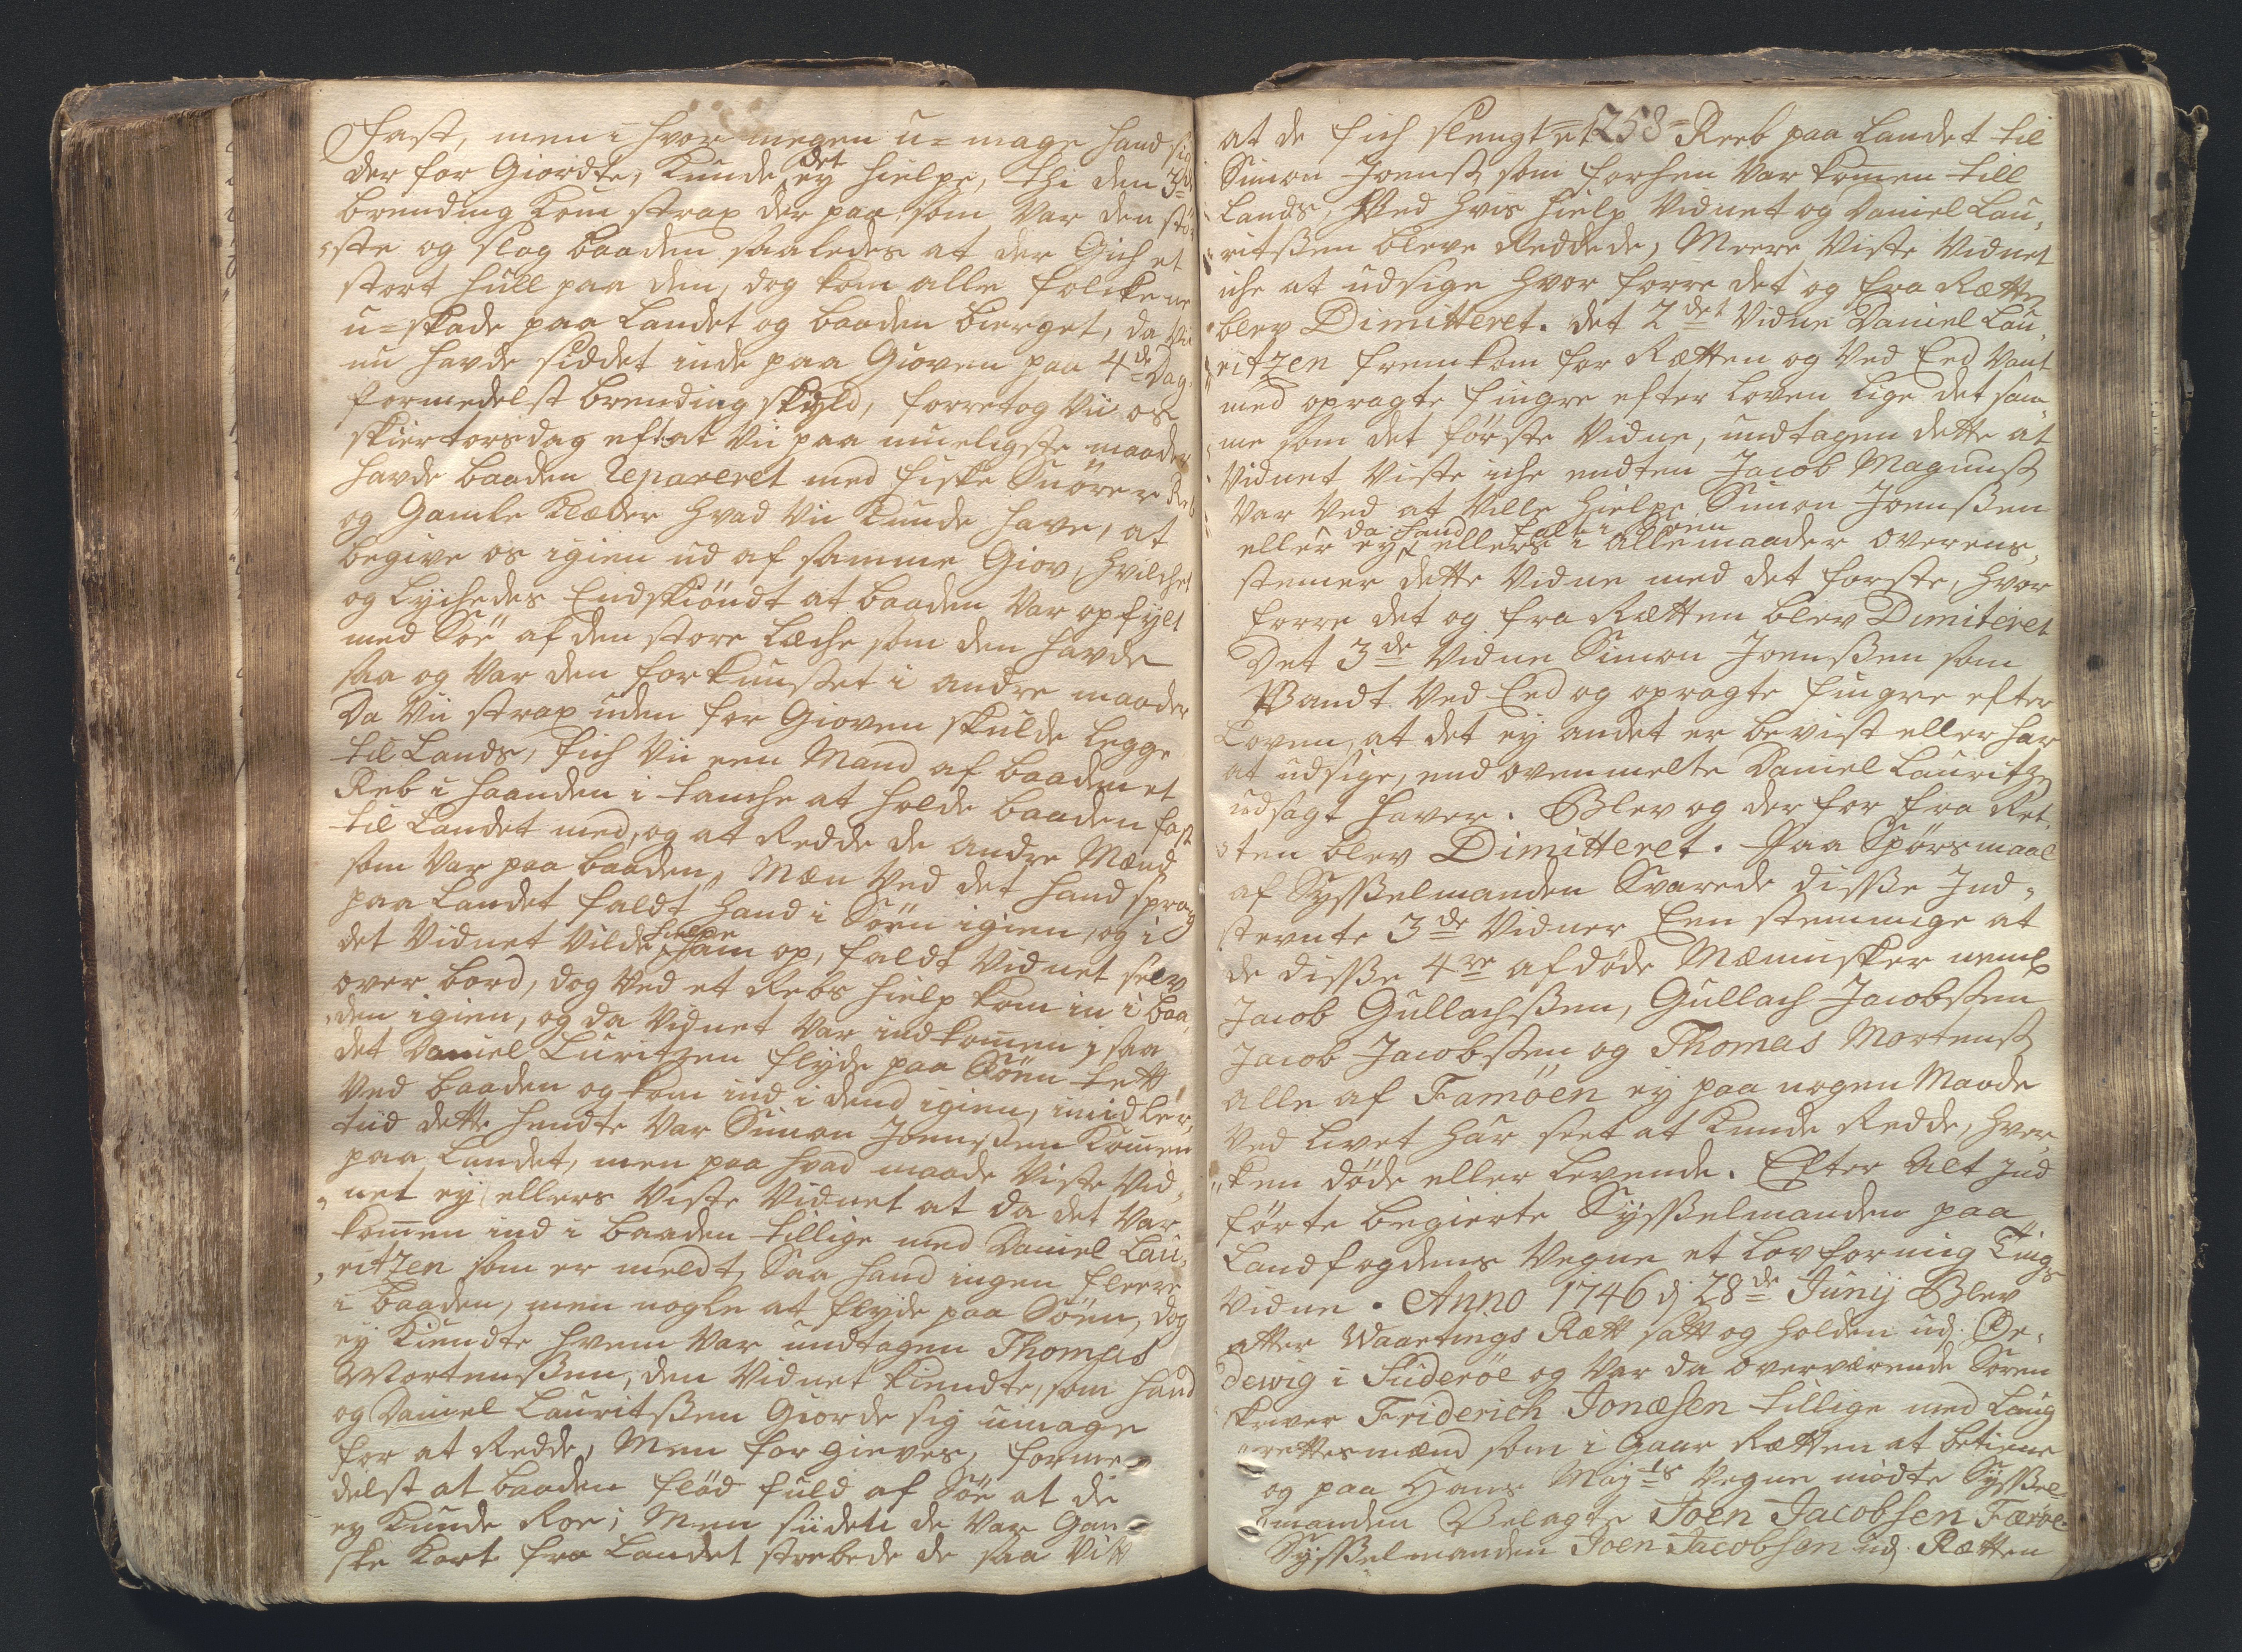 fast, men i hvor megen u-mage hand sig
der for Giordte, kunde det ey hielpe, thi den 3de
brending kom strax der paa som var den stör
ste og slog baaden saaledes at der Gich et
stort Hull paa den, dog kom alle folckene
u-skade paa Landet og baaden bierget, da vii
nu havde siddet inde paa Gioven paa 4de Dag
formedelst brending skyld, foretog vii os
skiertorsdag eft: at vii paa mueligste maader
havde baaden repareret med fiske Snörer Reb
og Gamle Klæder hvad vii kunde have, at
begive os igien ud af samme Giov, hvilchet
og Lychedes Endskiöndt at baaden var opfylt
med Söe af den store Læche som den havde
saa og var den forkunstet i andre maader
Da vii strax uden for Gioven skulde Legge
til Lands, fich vii een Mand af baaden et
Reb i haanden i tanche at holde baaden fast
til Landet med, og at Redde de andre Mænd
som var paa baaden, Mæn ved det hand sprang
paa Landet faldt hand i Söen igien, og i
det Vidnet vilde hielpe ham op, faldt Vidnet selv
over bord, dog ved et Rebs hielp kom in i baa
den igien, og da Vidnet var indkommen, saa
det Daniel Luritzen flyde paa Söen tætt
ved baaden og kom ind i dend igien, imidler
tiid dette hendte var Simon Joensen kommen
paa Landet, men paa hvad maade viste Vid
net ey ellers viste Vidnet at da det var
kommen ind i baaden tillige med Daniel Lau
ritzen som er meldt, Saa hand ingen fleere
i baaden, men nogle at flyde paa Söen, dog
ey kiendte hvem var undtagen Thomas
Mortensßen, den Vidnet kiendte, som hand
og Daniel Lauritsßen Giorde sig umage
for at Redde, Men forgieves, forme
delst at baaden flöd fuld af Söe at de
ey kunde Roe; Men siiden de var Gan
ske kort fra Landet strebede de saa vitt
at de fich slengt et 258 Reeb paa Landet til
Simon Joensß som forhen var kommen till
Lands, Ved hvis hielp Vidnet og Daniel Lau
ritsßen bleve Reddede, Meere viste Vidnet
iche at udsige hvor forre det og fra Rætten
blev Dimitteret. det 2det Vidne Daniel Lau
ritzen fremkom for Rætten og ved Eed Vant
med opragte fingre efter Loven lige det sam
me som det förste Vidne, undtagen dette at
Vidnet viste iche endten Jacob Magnusß
var ved at ville hielpe Simon Joensßen
da hand falt i Söen
eller ey, ellers i alle maader overens
stemer dette Vidne med det forste, hvor
forre det og fra Rætten blev Dimiteret
Det 3de Vidne Simon Joensßen som
Vandt ved Eed og opragte fingre efter
Loven, at det ey andet er bevist eller har
at udsige, end ovenmelte Daniel Lauritzen
udsagt haver. Blev og der for fra Ret
ten blev Dimitteret. Paa Spörsmaal
af Sysßelmanden Svarede disße Ind
stevnte 3de Vidner Eenstemmige at
de disße 4re afdöde Mænnisker neml
Jacob Gullachsßen, Gullach Jacobsßen
Jacob Jacobsßen og Thomas Mortensß
alle af Famöen ey paa nogen Maade
ved Livet har seet at kunde Redde, hver
ken döde eller Levende. Efter alt ind
förte begierte Sysßelmanden paa
Landfogdens Vegne et Lovformig Tings
vidne. Anno 1746 d 28de Junij Blev
atter Waartings Rætt satt og holden ud Oe
dewig i Suderöe og var da overværende Soren
skriver Friderich Jonæsen tillige med Laug
rettesmænd som i Gaar Rætten at betiene
og paa Hans Mayts Vegne mödte Sysßel
manden Velagte Joen Jacobsen Færöe
Sysßelmanden Joen Jacobsen ud Rætten